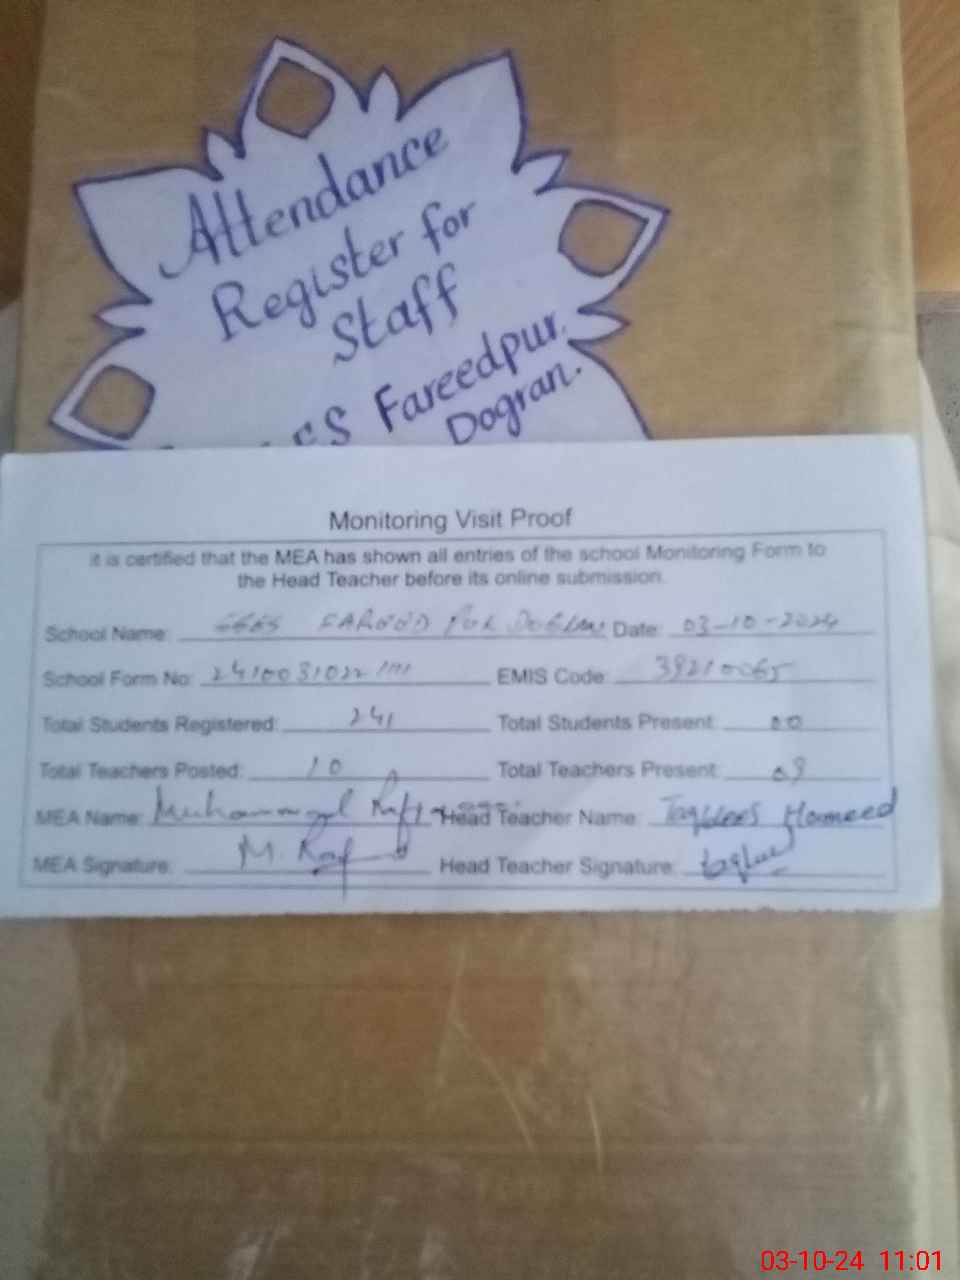 Attendance
Register for
Staff
Fareedpur.
Dogran.
Monitoring Visit Proof
it is certified that the MEA has shown all entries of the school Monitoring Form to
the Head Teacher before its online submission.
School Name: Date: 03-10-2024
School Form No: EMIS Code: 39210065
Total Students Registered: 241 Total Students Present: 00
Total Teachers Posted: 10 Total Teachers Present: 09
MEA Name: Muhammad Head Teacher Name: Hameed
MEA Signature: M. Head Teacher Signature:
03-10-24 11:01